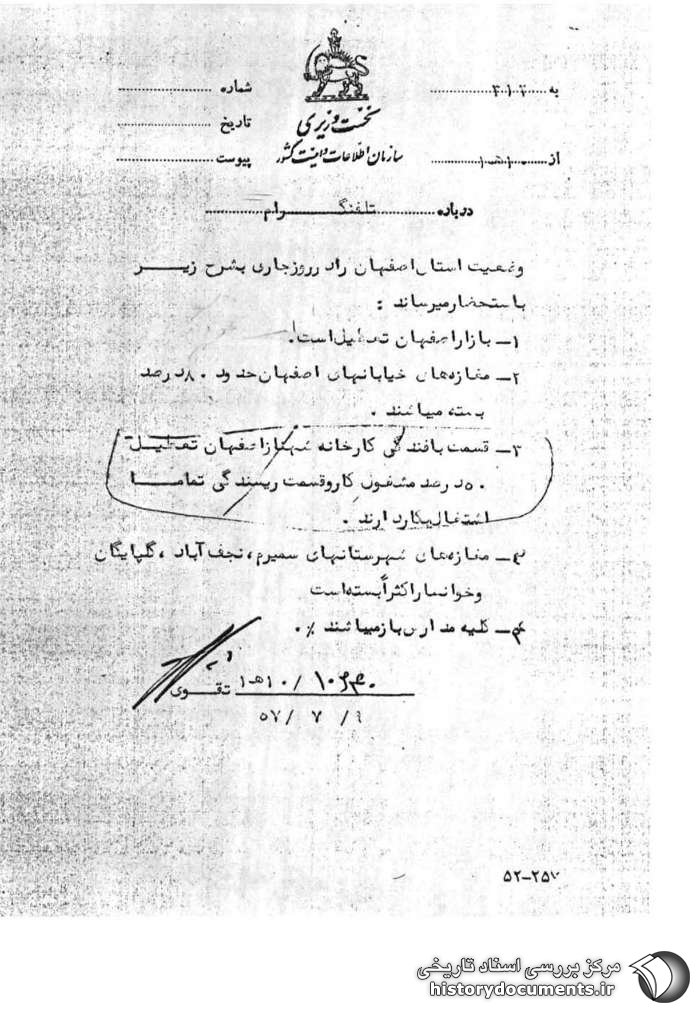 به ...... ۳۰۲ ...... شماره ......
نخست وزیری
تاریخ ......
از ...... ۱۰ ه‍ ۱ ...... سازمان اطلاعات و امنیت کشور پیوست ......
درباره ...... تلفنگـــــرام ......
وضعیت استان اصفهان را در روز جاری بشرح زیـــر
باستحضار میرساند :
۱ـ بازار اصفهان تعطیل است.
۲ـ مغازه‌های خیابانهای اصفهان حدود ۸۰ درصد
بسته میباشند .
۳ـ قسمت بافندگی کارخانه شهناز اصفهان تعطیــل
۵۰ درصد مشغول کار و قسمت ریسندگی تمامــا
اشتغال بکار دارند .
۴ـ مغازه‌های شهرستانهای سمیرم ، نجف آباد ، گلپایگان
و خوانسار اکثراً بسته است
ـ کلیه مدارس باز میباشند ٪.
۱۰ ه‍ ۱ /
تقــوی
۵۷/ ۷ / ۹
۵۲-۲۵۷
مرکز بررسی اسناد تاریخی
historydocuments.ir